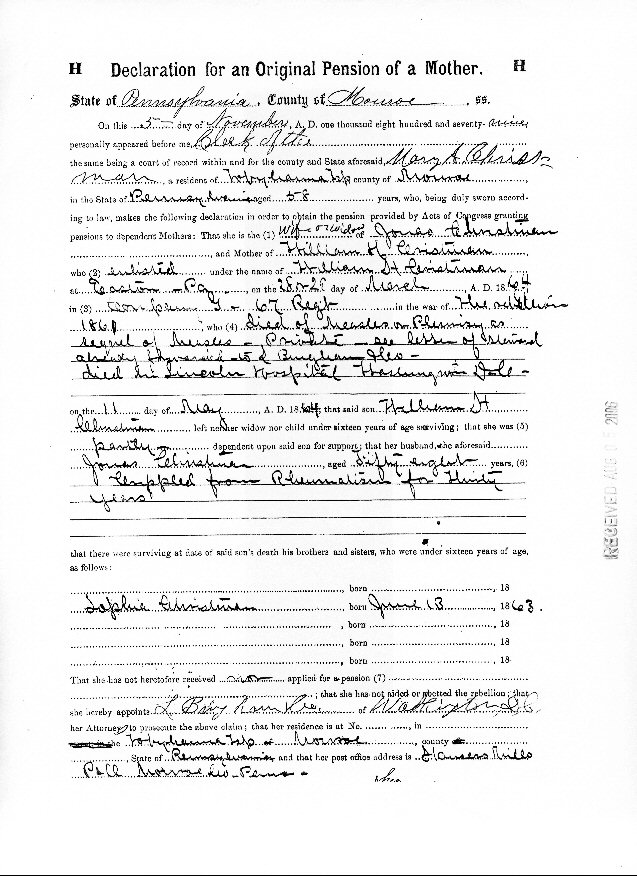 H Declaration for an Original Pension of a Mother. H
State of Pennsylvania, County of Monroe, ss.
On this 5 day of November, A. D. one thousand eight hundred and seventy-nine
personally appeared before me, Clerk of the
the same being a court of record within and for the county and State aforesaid, Mary C. Christ-
man, a resident of Tobyhanna Twp county of Monroe
in the State of Pennsylvania aged 58 years, who, being duly sworn accord-
ing to law, makes the following declaration in order to obtain the pension provided by Acts of Congress granting
pensions to dependent Mothers: That she is the (1) Wife or Widow of Jonas Christman
, and Mother of William H Christman
who (2) enlisted under the name of William H Christman
at Easton Pa, on the 28 or 29 day of March, A. D. 1864
in (3) Company 67 Regt in the war of The rebellion
1861, who (4) Died of Measles or Pleurisy as
sequel of Measles - Private - see letter of
already
died in Lincoln Hospital Washington
on the 11 day of May, A. D. 1864; that said son William H
Christman left neither widow nor child under sixteen years of age surviving; that she was (5)
partly dependent upon said son for support; that her husband, the aforesaid
Jonas Christman, aged fifty eight years, (6)
Crippled from Rheumatism for thirty
years
that there were surviving at date of said son's death his brothers and sisters, who were under sixteen years of age,
as follows:
, born , 18
Sophia Christman born June 13, 1863.
, born , 18
, born , 18
, born , 18
That she has not heretofore received applied for a pension (7)
; that she has not aided or abetted the rebellion; that
she hereby appoints of Washington
her Attorney to prosecute the above claim; that her residence is at No. , in
the Tobyhanna Twp of Monroe, county
, State of Pennsylvania and that her post office address is Mills
P.O. Monroe Co Penna
RECEIVED AUG 2006